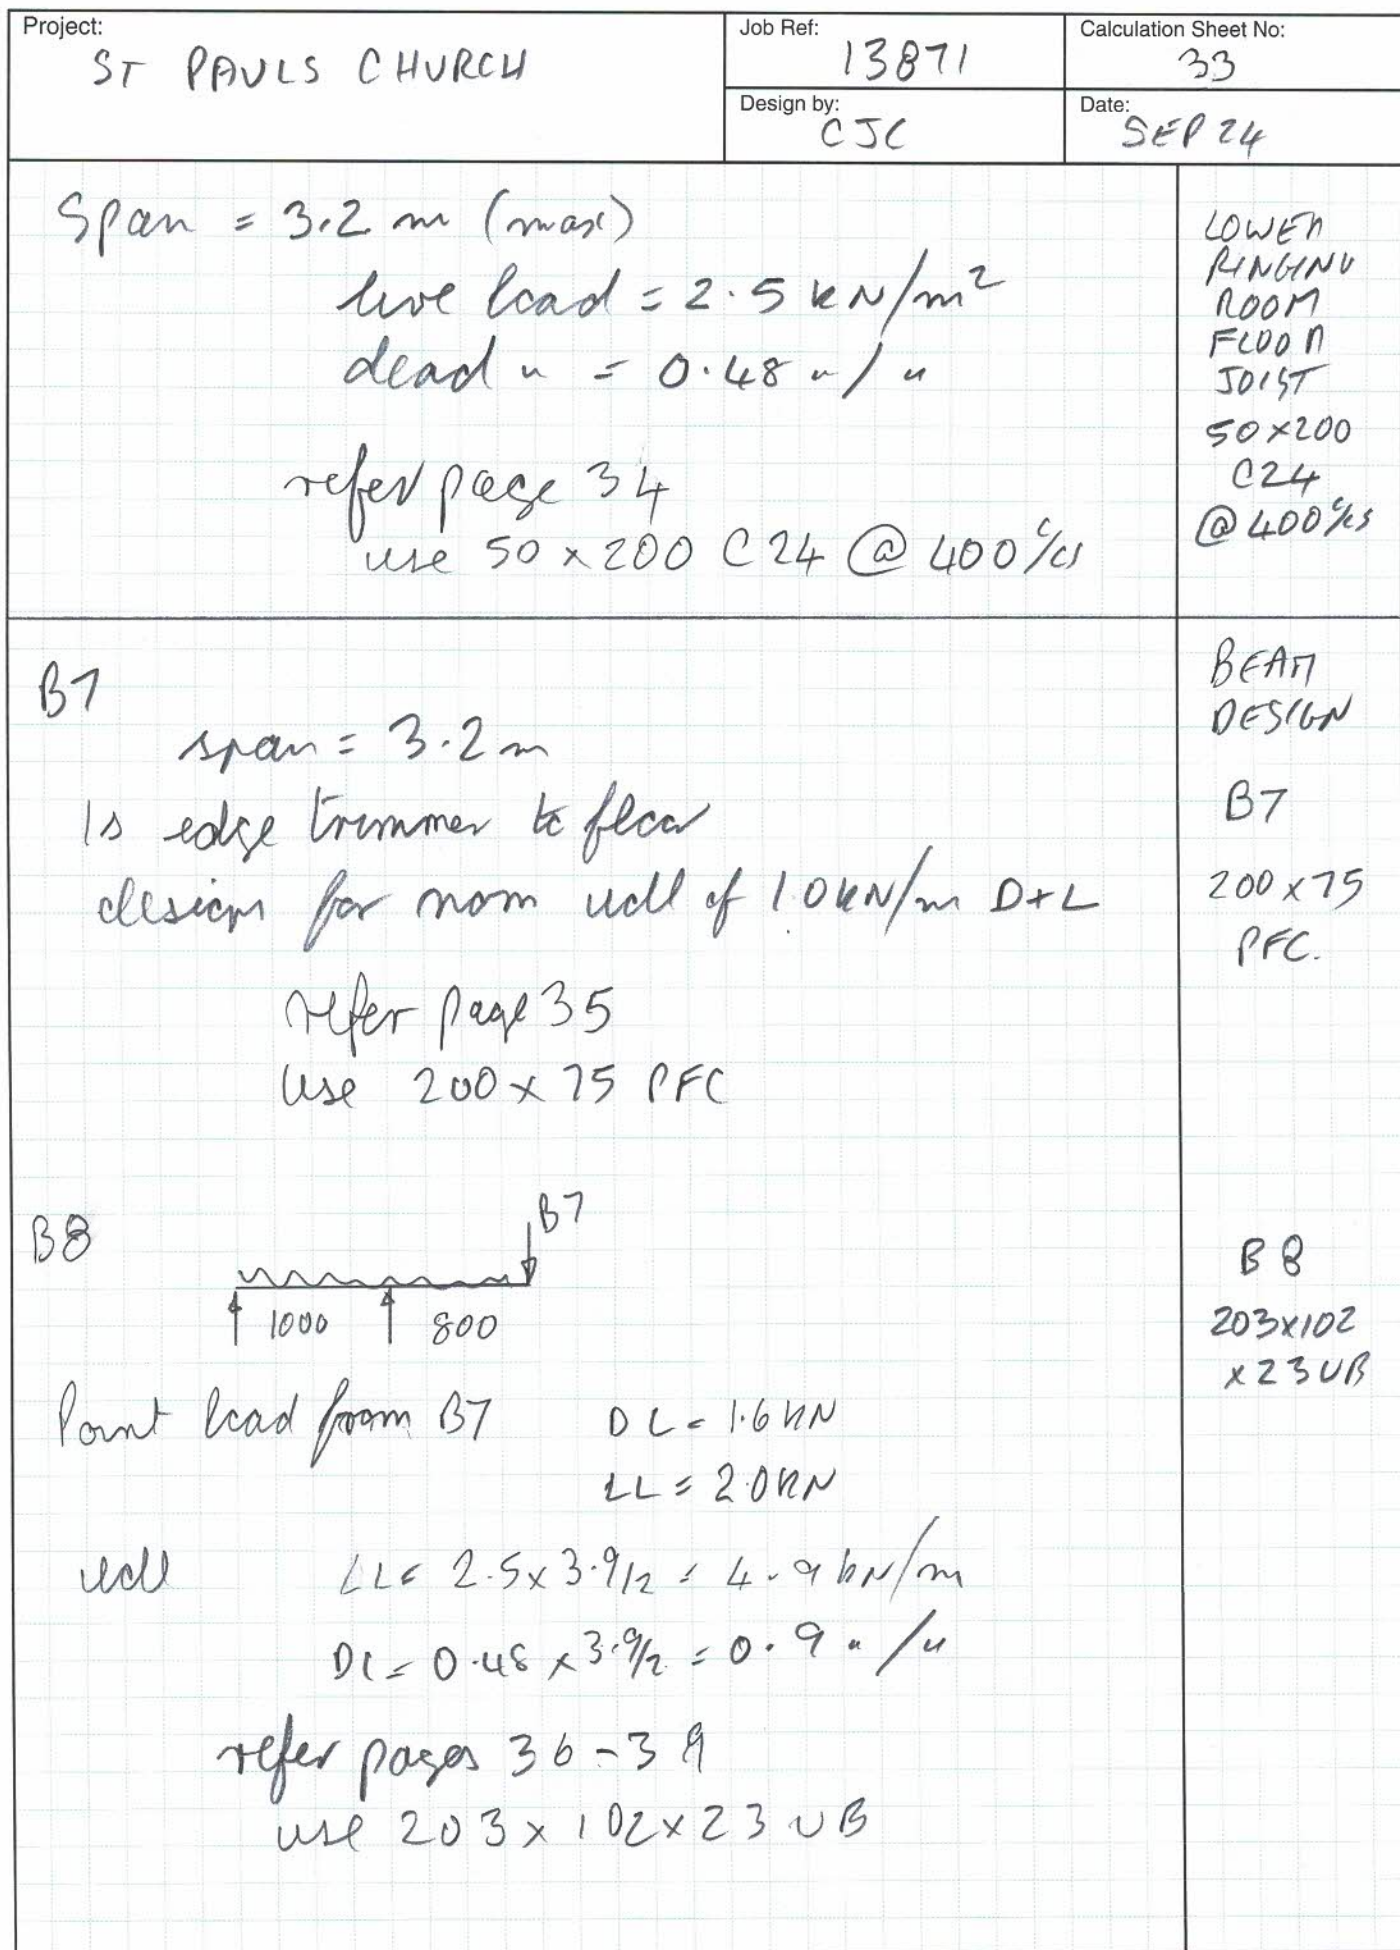 Project:
ST PAULS CHURCH
Job Ref:
13871
Calculation Sheet No:
33
Design by:
CJC
Date:
SEP 24
Span = 3.2 m (max)
live load = 2.5 kN/m²
dead " = 0.48 " / "
refer page 34
use 50 x 200 C24 @ 400 c/cs
LOWER
RINGING
ROOM
FLOOR
JOIST
50 x 200
C24
@ 400 c/cs
B7
span = 3.2 m
Is edge trimmer to floor
design for nom udl of 1.0 kN/m D+L
refer page 35
Use 200 x 75 PFC
BEAM
DESIGN
B7
200 x 75
PFC.
B8
B7
1000
800
Point load from B7 DL = 1.6 kN
LL = 2.0 kN
udl LL = 2.5 x 3.9/2 = 4.9 kN/m
DL = 0.48 x 3.9/2 = 0.9 " / "
refer pages 36 - 39
use 203 x 102 x 23 UB
B8
203x102
x 23 UB